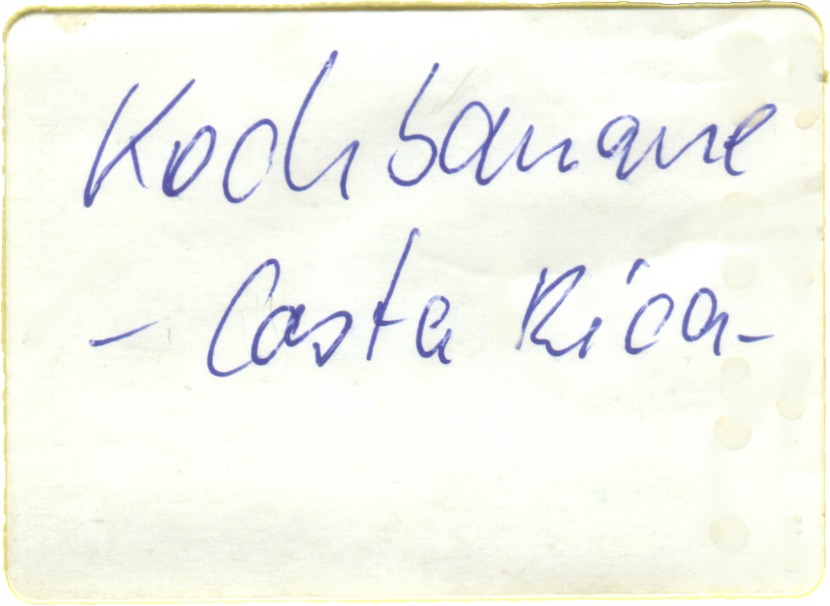 Kochbanane
- Costa Rica-